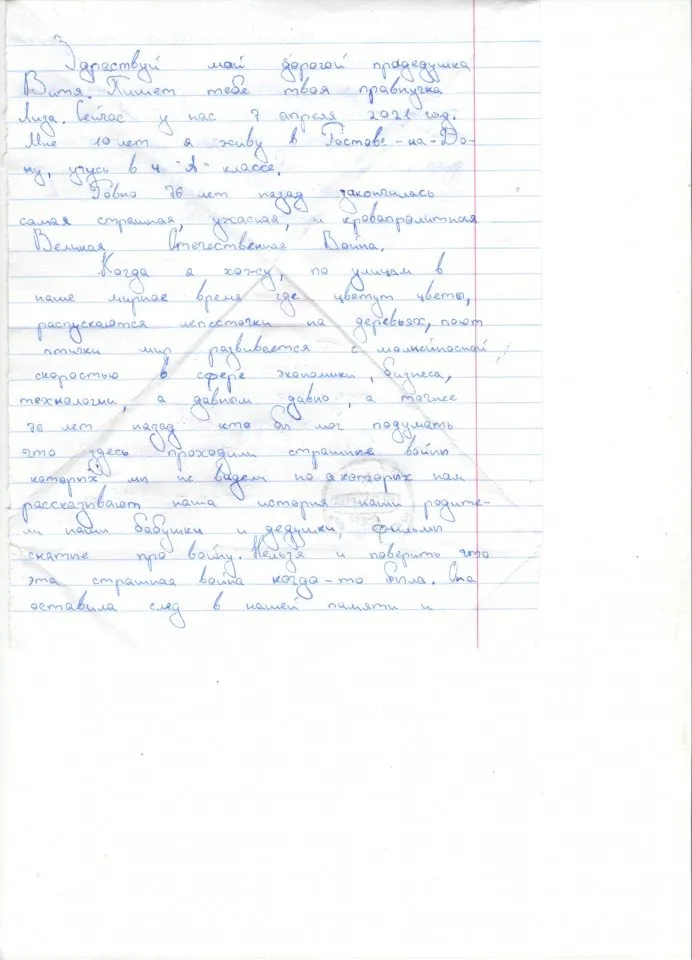 Здраствуй мой дорогой прадедушка
Витя. Пишет тебе твоя правнучка
Лиза. Сейчас у нас 7 апреля 2021 год.
Мне 10 лет я живу в Ростове-на-До-
ну, учусь в 4 "А" классе.
Ровно 76 лет назад закончилась
самая страшная, ужасная, и кровапролитная
Великая Отечественная Война.
Когда я хожу, по улицам в
наше мирнае время где цветут цветы,
распускаются лепесточки на деревьях, поют
птички мир развивается с молнейносной
скоростью в сфере экономики, бизнеса,
технологии, а давным давно, а точнее
76 лет назад кто бы мог подумать
что здесь проходили страшные войны
которых мы не видели но о которых нам
рассказывают наша история наши родите-
ли наши бабушки и дедушки, фильмы
снятые про войну. Нельзя и поверить что
эта страшная война когда-то была. Она
оставила след в нашей памяти и